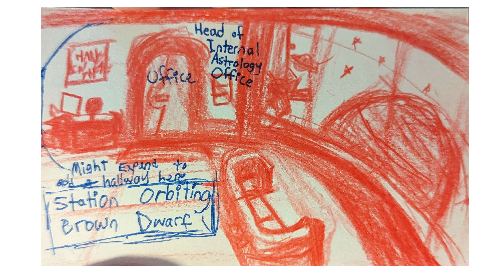 Head of
Internal
Astrology
Office
Office
Might Expand to
hallway here
Station Orbiting
Brown Dwarf